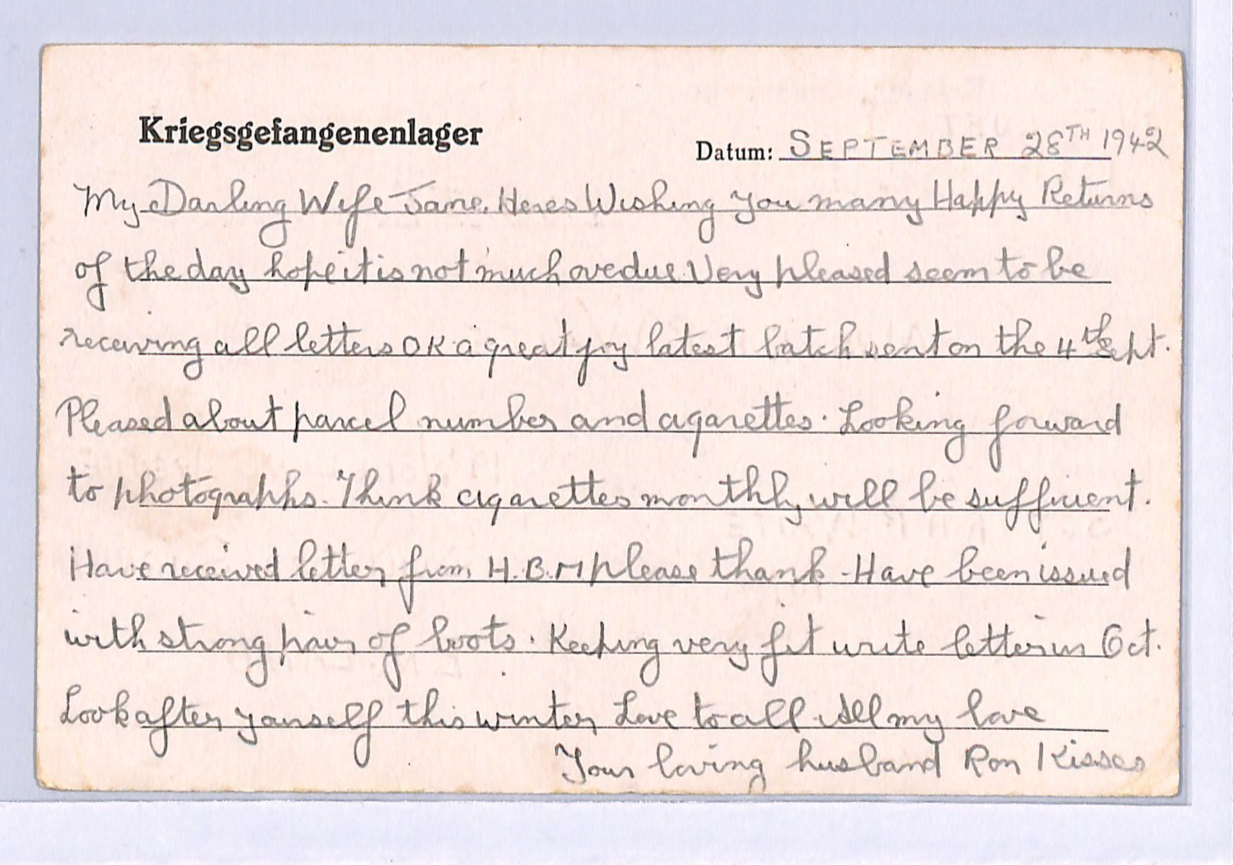 Kriegsgefangenenlager
Datum: SEPTEMBER 28TH 1942
My Darling Wife Jane. Heres Wishing you many Happy Returns
of the day hope it is not much overdue. Very pleased seem to be
receiving all letters OK a great joy latest batch sent on the 4th Sept.
Pleased about parcel number and cigarettes. Looking forward
to photographs. Think cigarettes monthly will be sufficient.
Have received letter from H.B.M please thank - Have been issued
with strong pair of boots. Keeping very fit write letter in Oct.
Look after yourself this winter, Love to all All my love
Your loving husband Ron Kisses